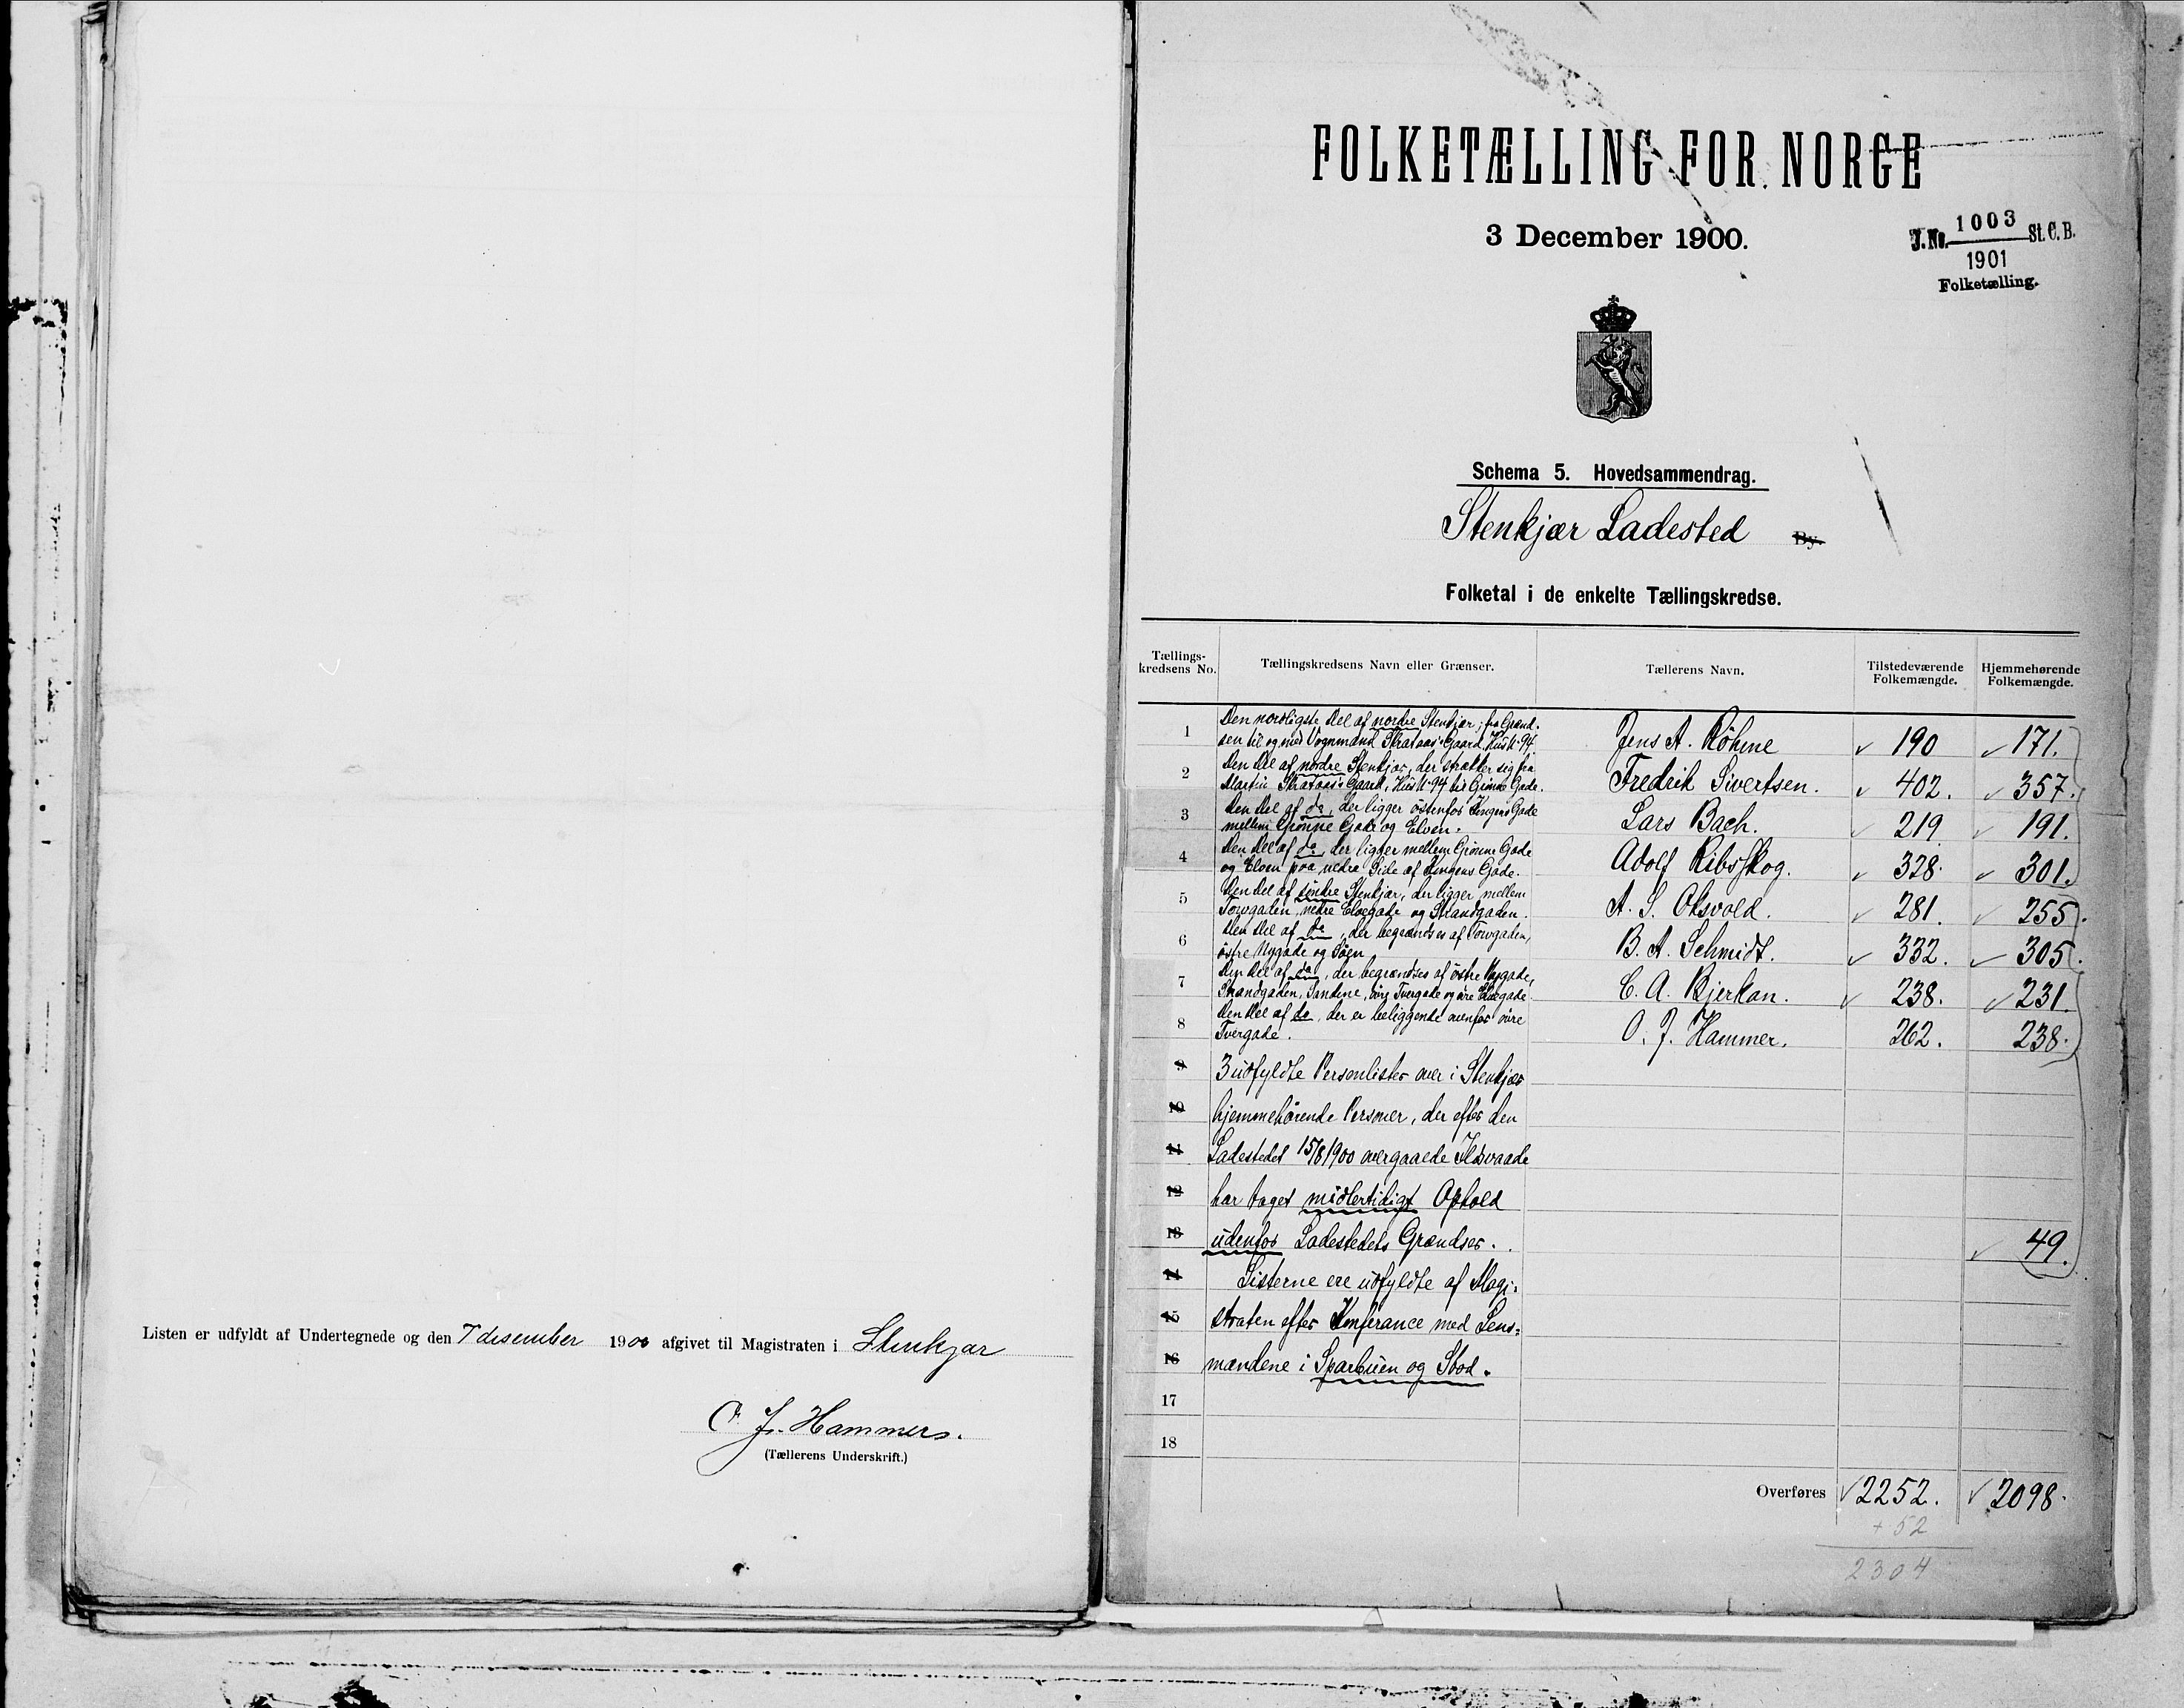 Listen er udfyldt af Undertegnede og den 7 desember 1900 afgivet til Magistraten i Stenkjær
O. J. Hammer.
(Tællerens Underskrift.)
FOLKETÆLLING FOR NORGE
3 December 1900.
J. No. 1003 St. C. B.
1901
Folketælling.
Schema 5. Hovedsammendrag.
Stenkjær Ladested By.
Folketal i de enkelte Tællingskredse.
Tællings-
kredsens No.
Tællingskredsens Navn eller Grænser.
Tællerens Navn.
Tilstedeværende
Folkemængde.
Hjemmehørende
Folkemængde.
1 Den nordligste Del af nordre Stenkjær; fra Grænd-
sen til og med Vognmand Strataas's Gaard, Hus N. 94 Jens A. Röhme 190 171.
2 Den Del af nordre Stenkjær, der strækker sig fra
Martin Strataas's Gaard, Hus N. 94 til Grønne Gade. Fredrik Sivertsen. 402. 357.
3 Den Del af do, der ligger østenfor Kongens Gade
mellem Grønne Gade og Elven. Lars Bach. 219 191.
4 Den Del af do, der ligger mellem Grønne Gade
og Elven paa nedre Side af Kongens Gade. Adolf Ribsskog. 328. 301.
5 Den Del af søndre Stenkjær, der ligger mellem
Torvgaden, nedre Elvegade og Strandgaden. A. S. Oksvold. 281. 255.
6 Den Del af do, der begrændses af Torvgaden,
østre Nygade og Søen B. A. Schmidt. 332. 305.
7 Den Del af do, der begrændses af østre Nygade,
Strandgaden, Sandene, øvre Tvergade og øvre Elvegade. C. A. Bjerkan. 238. 231.
8 Den Del af do, der er beliggende ovenfor øvre
Tvergade. O. J. Hammer. 262. 238.
9 3 udfyldte Personlister over i Stenkjær
10 hjemmehørende Personer, der efter den
11 Ladestedet 15/8 1900 overgaaede Ildsvaade
12 har taget midlertidigt Ophold
13 udenfor Ladestedets Grændser. 49.
14 Listerne ere udfyldte af Magi-
15 straten efter Konferance med Lens-
16 mændene i Sparbuen og Stod.
17
18
Overføres 2252. 2098.
+ 52
2304